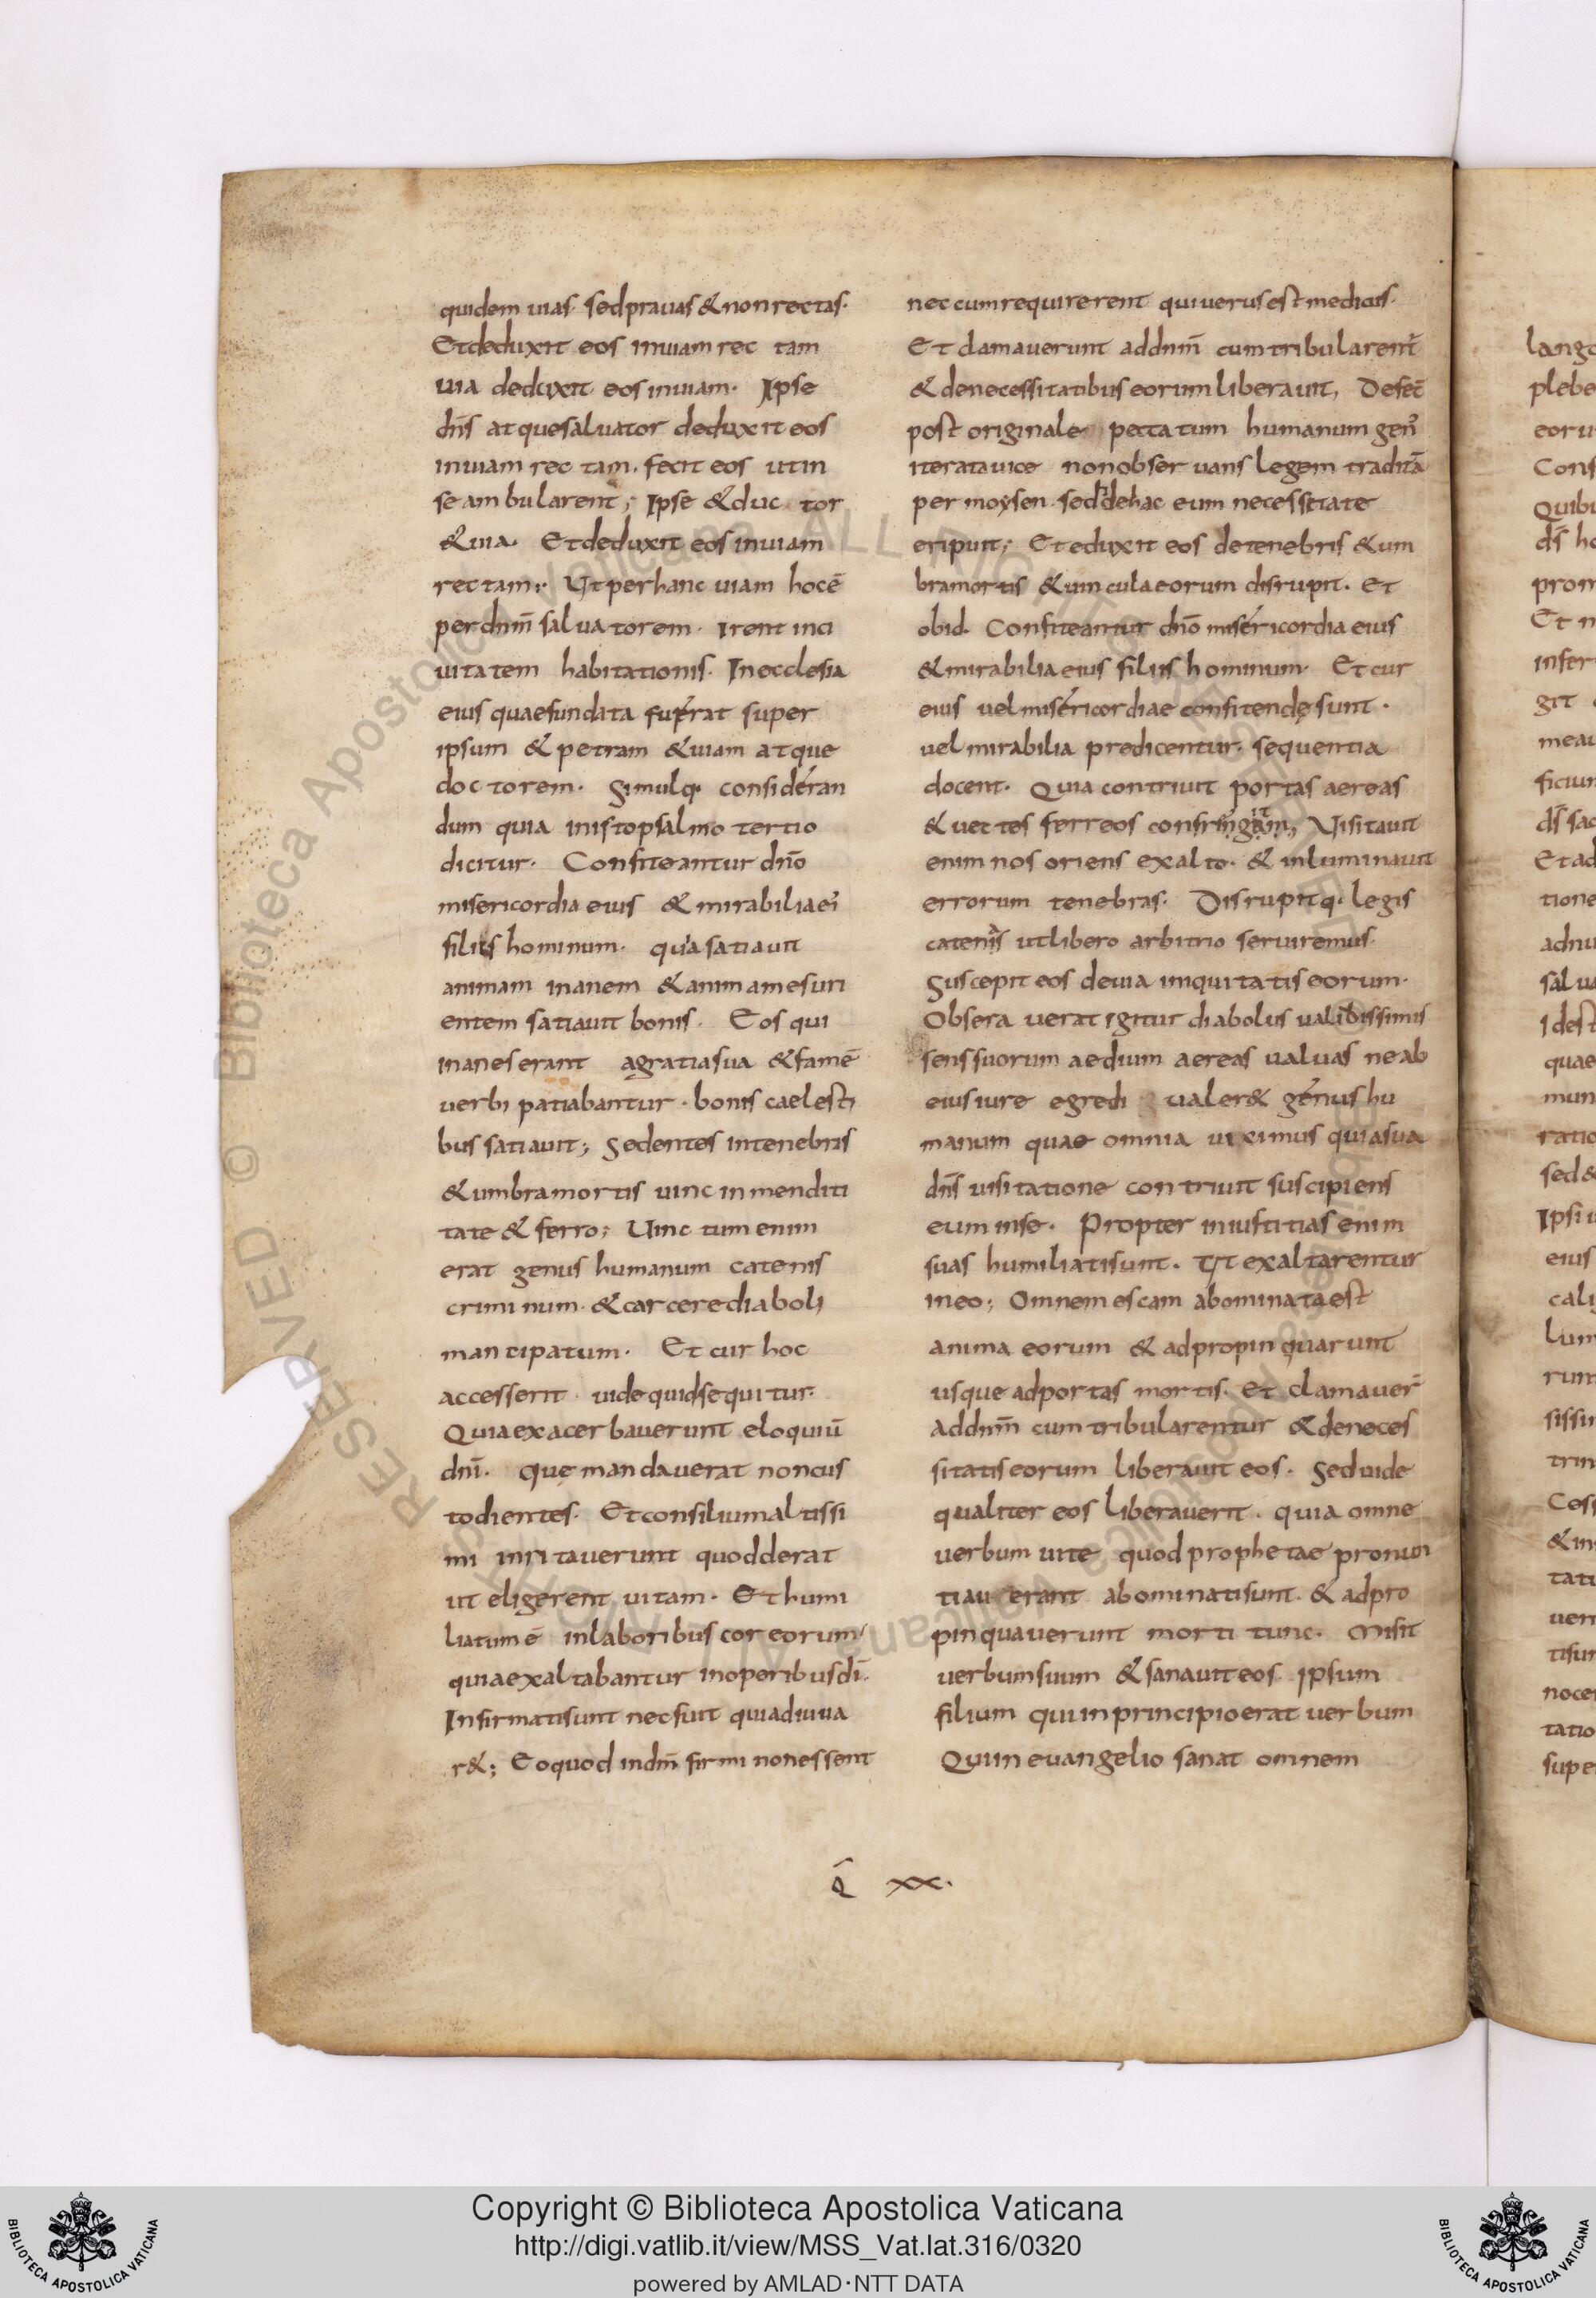 quidem uias. sed prauas & non rectas.
Et deduxit eos in uiam rec tam
uia deduxit eos in uiam. Ipse
dn̄s atque saluator deduxit eos
in uiam rec tam. fecit eos ut in
se ambularent; Ipse & duc tor
& uia. Et deduxit eos in uiam
rectam; Ut per hanc uiam hoc ē
per dnm̄ saluatorem. Irent in ci
uitatem habitationis. In ecclesia
eius quae fundata fuerat super
ipsum & petram & uiam atque
doc torem. Simulq. consideran
dum quia in isto psalmo tertio
dicitur. Confiteantur dnō
misericordia eius & mirabilia ei᾽
filiis hominum. quia satiauit
animam inanem & animam esuri
entem satiauit bonis. Eos qui
inanes erant a gratia sua & famē
uerbi patiabantur. bonis caelesti
bus satiauit; Sedentes in tenebris
& umbra mortis uinc in menditi
tate & ferro; Uinc tum enim
erat genus humanum catenis
criminum. & carcere diaboli
mancipatum. Et cur hoc
accesserit uide quid sequitur.
Quia exacerbauerunt eloquiū
dnī. quę mandauerat non cus
todientes. Et consilium altissi
mi inritauerunt quod derat
ut eligerent uitam. Et humi
liatum ē in laboribus cor eorum
quia exaltabantur in operibus dī.
Infirmati sunt nec fuit qui adiuua
r&; Eo quod in dnm̄ firmi non essent
nec cum requirerent qui uerus est medicus.
Et clamauerunt ad dnm̄ cum tribularent᾽
& de necessitatibus eorum liberauit, Defec̄
post originale peccatum humanum gen᾽
iterata uice non obseruans legem traditā
per moysen. sed de hac eum necessitate
eripuit; Et eduxit eos de tenebris & um
bra mortis & uincula eorum disrupit. Et
ob id. Confiteantur dnō misericordia eius
& mirabilia eius filiis hominum. Et cur
eius uel misericordiae confitendę sunt.
uel mirabilia predicentur. sequentia
docent. Quia contriuit portas aereas
& uectes ferreos confringam, Uisitauit
enim nos oriens ex alto. & inluminauit
errorum tenebras. Disrupitq. legis
catenis ut libero arbitrio seruiremus.
Suscepit eos de uia iniquitatis eorum.
Obserauerat igitur diabolus ualidissimis
sens suorum aedium aereas ualuas ne ab
eius iure egredi ualer& genus hu
manum quae omnia uiximus quia sua
dn̄s uisitatione contriuit suscipiens
eum in se. Propter iniustitias enim
suas humiliati sunt. Ut exaltarentur
in eo; Omnem escam abominata est
anima eorum & adpropinquarunt
usque ad portas mortis. Et clamauer̄
ad dnm̄ cum tribularentur & de neces
sitatis eorum liberauit eos. Sed uide
qualiter eos liberauerit. quia omne
uerbum uite quod prophetae pronun
tiauerant abominati sunt. & adpro
pinquauerunt morti tunc. Misit
uerbum suum & sanauit eos. Ipsum
filium qui in principio erat uerbum
Qui in euangelio sanat omnem
Q̄ xx.
lango
plebe
Cons
Quibu
ds̄ ho
prom
Et n
infer
git
meau
ficium
ds̄ sac
Et ad
tione
adnu
salua
Idest
quae
mun
ratio
sed &
Ipsi u
eius
cali
lum
rum
sissi
trin
Cess
& in
tati
uem
tisun
noce
tatio
supe
Copyright © Biblioteca Apostolica Vaticana
http://digi.vatlib.it/view/MSS_Vat.lat.316/0320
powered by AMLAD·NTT DATA
BIBLIOTECA APOSTOLICA VATICANA
BIBLIOTECA APOSTOLICA VATICANA